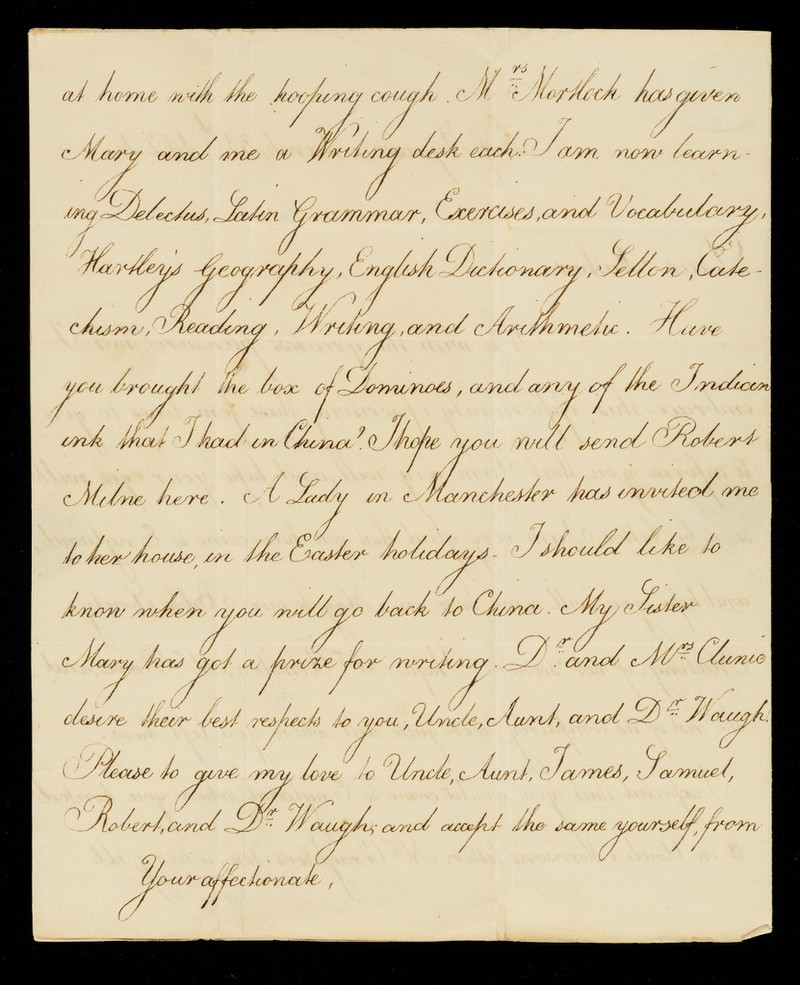 at home with the hooping cough. Mrs Mortlock has given
Mary and me a Writing desk each. I am now learn-
ing Delectus, Latin Grammar, Exercises, and Vocabulary,
Hartley's Geography, English Dictionary, Sellon, Cate-
chism, Reading, Writing, and Arithmetic. Have
you brought the box of Dominoes, and any of the Indian
ink that I had in China? I hope you will send Robert
Milne here. A Lady in Manchester has invited me
to her house, in the Easter holidays. I should like to
know when you will go back to China. My Sister
Mary has got a prize for writing. Dr. and Mrs Clunie
desire their best respects to you, Uncle, Aunt, and Dr Waugh.
Please to give my love to Uncle, Aunt, James, Samuel,
Robert, and Dr Waugh; and accept the same yourself, from
Your affectionate,